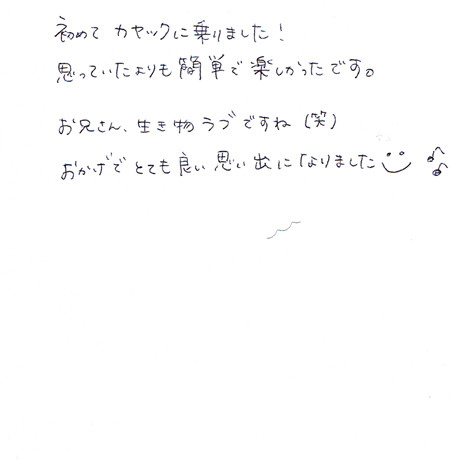 初めて カヤックに乗りました！
思っていたよりも簡単で楽しかったです。
お兄さん、生き物ラブですね（笑）
おかげでとても良い思い出になりました